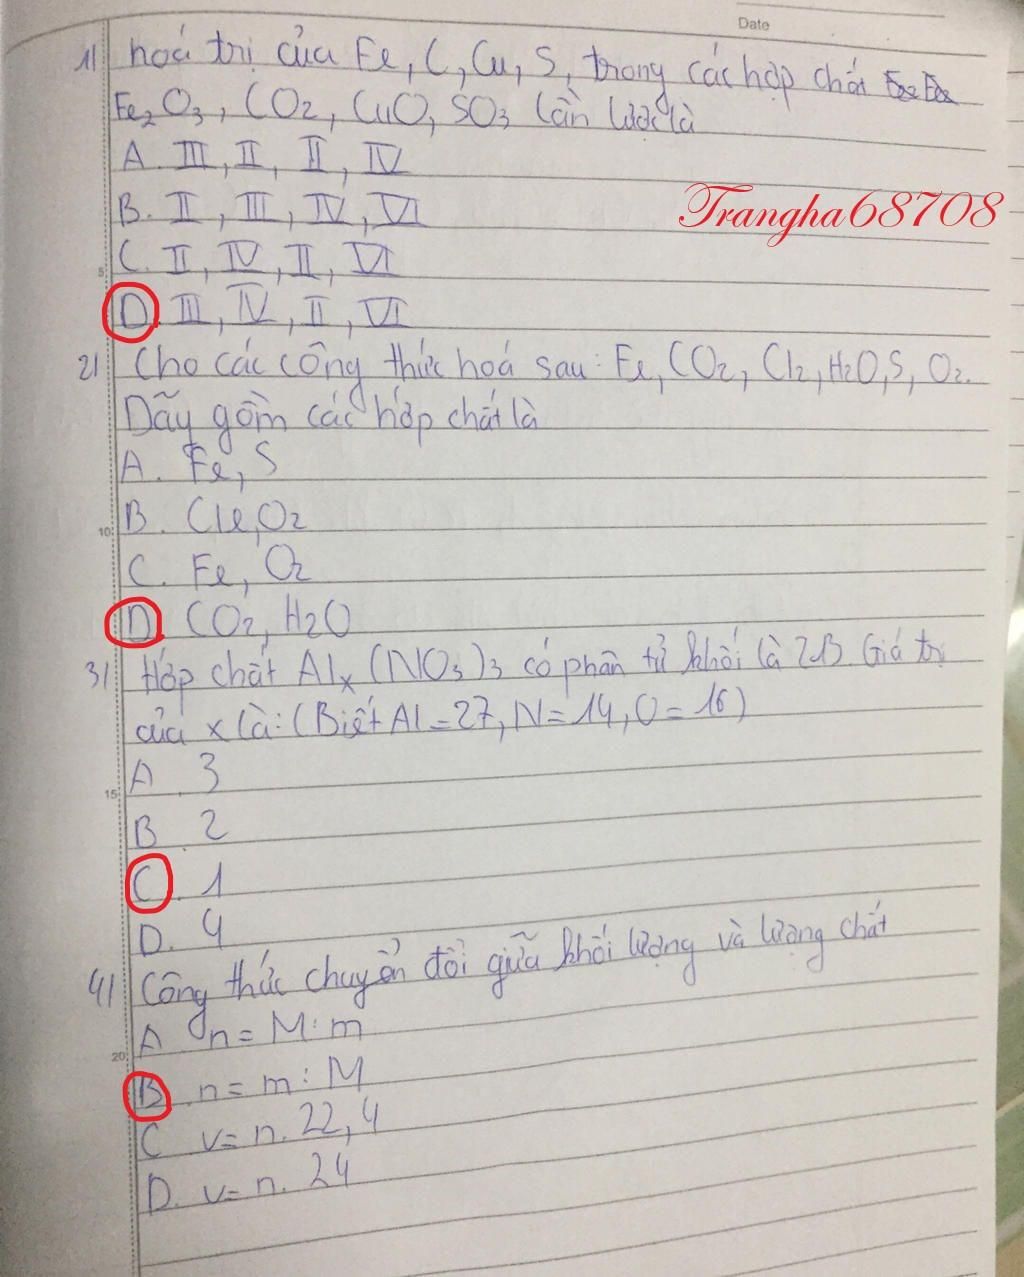 Date
1/ hoá trị của Fe, C, Cu, S, trong các hợp chất
Fe2O3, CO2, CuO, SO3 lần lượt là
A. III, II, II, IV
B. II, III, IV, VI
5
C. II, IV, II, VI
Trangha68708
D. III, IV, II, VI
2/ Cho các công thức hoá sau: Fe, CO2, Cl2, H2O, S, O2.
Dãy gồm các hợp chất là
A. Fe, S
10
B. Cl2, O2
C. Fe, O2
D. CO2, H2O
3/ Hợp chất Alx(NO3)3 có phân tử khối là 213. Giá trị
của x là: (Biết Al=27, N=14, O=16)
A. 3
15
B. 2
C. 1
D. 4
4/ Công thức chuyển đổi giữa khối lượng và lượng chất
A n = M : m
20
B. n = m : M
C v = n. 22,4
D. v = n. 24